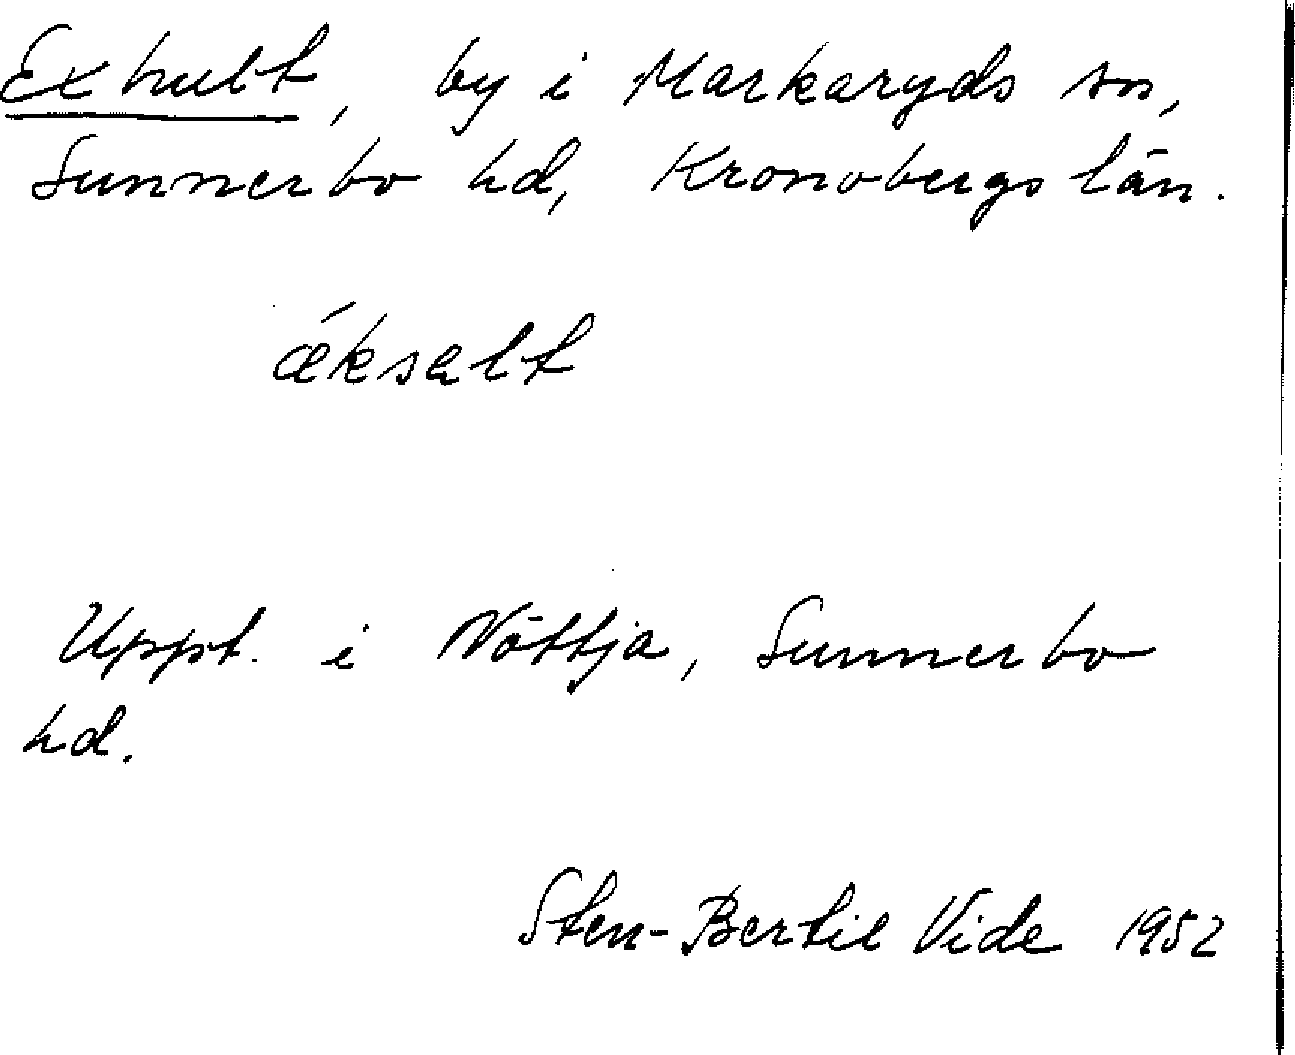 Exhult, by i Markaryds sn,
Sunnerbo hd, Kronobergs län.
ǽksalt
Uppt. i Nöttja, Sunnerbo
hd.
Sten-Bertil Vide 1952